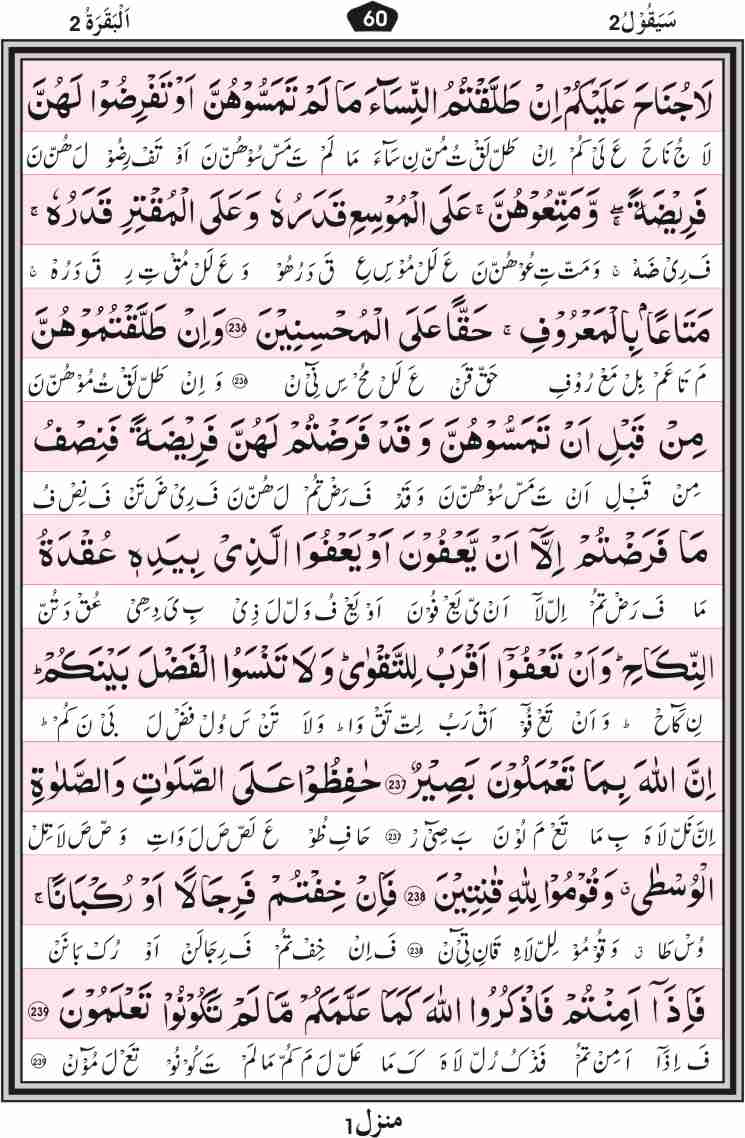 سَيَقُوْلُ 2 60 اَلْبَقَرَةُ 2
لَا جُنَاحَ عَلَيْكُمْ اِنْ طَلَّقْتُمُ النِّسَآءَ مَا لَمْ تَمَسُّوْهُنَّ اَوْ تَفْرِضُوْا لَهُنَّ
لَا جُ نَا حَ عَ لَىْ كُمْ اِنْ طَلْ لَقْ تُ مُنْ نِ سَآءَ مَا لَمْ تَ مَسْ سُوْ هُنْ نَ اَوْ تَفْ رِضُوْ لَ هُنْ نَ
فَرِيْضَةً ۖۚ وَّمَتِّعُوْهُنَّ ۚ عَلَى الْمُوْسِعِ قَدَرُهٗ وَعَلَى الْمُقْتِرِ قَدَرُهٗ ۚ
فَ رِىْ ضَهْ ۚ وَ مَتْ تِ عُوْ هُنْ نَ عَ لَلْ مُوْ سِ عِ قَ دَ رُ هُوْ وَ عَ لَلْ مُقْ تِ رِ قَ دَ رُهْ ۚ
مَتَاعًاۢ بِالْمَعْرُوْفِ ۚ حَقًّا عَلَى الْمُحْسِنِيْنَ ۝236 وَاِنْ طَلَّقْتُمُوْهُنَّ
مَ تَا عَمْ بِلْ مَعْ رُوْفِ حَقْ قَنْ عَ لَلْ مُحْ سِ نِىْٓ نْ ۝236 وَ اِنْ طَلْ لَقْ تُ مُوْ هُنْ نَ
مِنْ قَبْلِ اَنْ تَمَسُّوْهُنَّ وَقَدْ فَرَضْتُمْ لَهُنَّ فَرِيْضَةً فَنِصْفُ
مِنْ قَبْ لِ اَنْ تَ مَسْ سُوْ هُنْ نَ وَ قَدْ فَ رَضْ تُمْ لَ هُنْ نَ فَ رِىْ ضَ تَنْ فَ نِصْ فُ
مَا فَرَضْتُمْ اِلَّآ اَنْ يَّعْفُوْنَ اَوْ يَعْفُوَا الَّذِىْ بِيَدِهٖ عُقْدَةُ
مَا فَ رَضْ تُمْ اِلْ لَآ اَنْ ىْ يَعْ فُوْنَ اَوْ يَعْ فُ وَلْ لَ ذِىْ بِ ىَ دِهِىْ عُقْ دَ تُنْ
النِّكَاحِ ؕ وَاَنْ تَعْفُوْٓا اَقْرَبُ لِلتَّقْوٰى ؕ وَلَا تَنْسَوُا الْفَضْلَ بَيْنَكُمْ ؕ
نِ كَاحْ ؕ وَ اَنْ تَعْ فُوْٓ اَقْ رَبُ لِتْ تَقْ وَا ؕ وَ لَا تَنْ سَ وُلْ فَضْ لَ بَىْ نَ كُمْ ؕ
اِنَّ اللّٰهَ بِمَا تَعْمَلُوْنَ بَصِيْرٌ ۝237 حٰفِظُوْا عَلَى الصَّلَوٰتِ وَالصَّلٰوةِ
اِنْ نَلْ لَا هَ بِ مَا تَعْ مَ لُوْ نَ بَ صِىْٓ رْ ۝237 حَا فِ ظُوْ عَ لَصْ صَ لَ وَاتِ وَ صْ صَ لَا تِلْ
الْوُسْطٰى ۗ وَقُوْمُوْا لِلّٰهِ قٰنِتِيْنَ ۝238 فَاِنْ خِفْتُمْ فَرِجَالًا اَوْ رُكْبَانًا ۚ
وُسْ طَا ۗ وَ قُوْ مُوْ لِلْ لَاهِ قَانِ تِىْٓ نْ ۝238 فَ اِنْ خِفْ تُمْ فَ رِجَالَنْ اَوْ رُكْ بَانَنْ
فَاِذَآ اَمِنْتُمْ فَاذْكُرُوا اللّٰهَ كَمَا عَلَّمَكُمْ مَّا لَمْ تَكُوْنُوْا تَعْلَمُوْنَ ۝239
فَ اِذَآ اَ مِنْ تُمْ فَذْ كُ رُلْ لَا هَ كَ مَا عَلْ لَ مَ كُمْ مَا لَمْ تَ كُوْنُوْ تَعْ لَ مُوْٓنْ ۝239
منزل 1